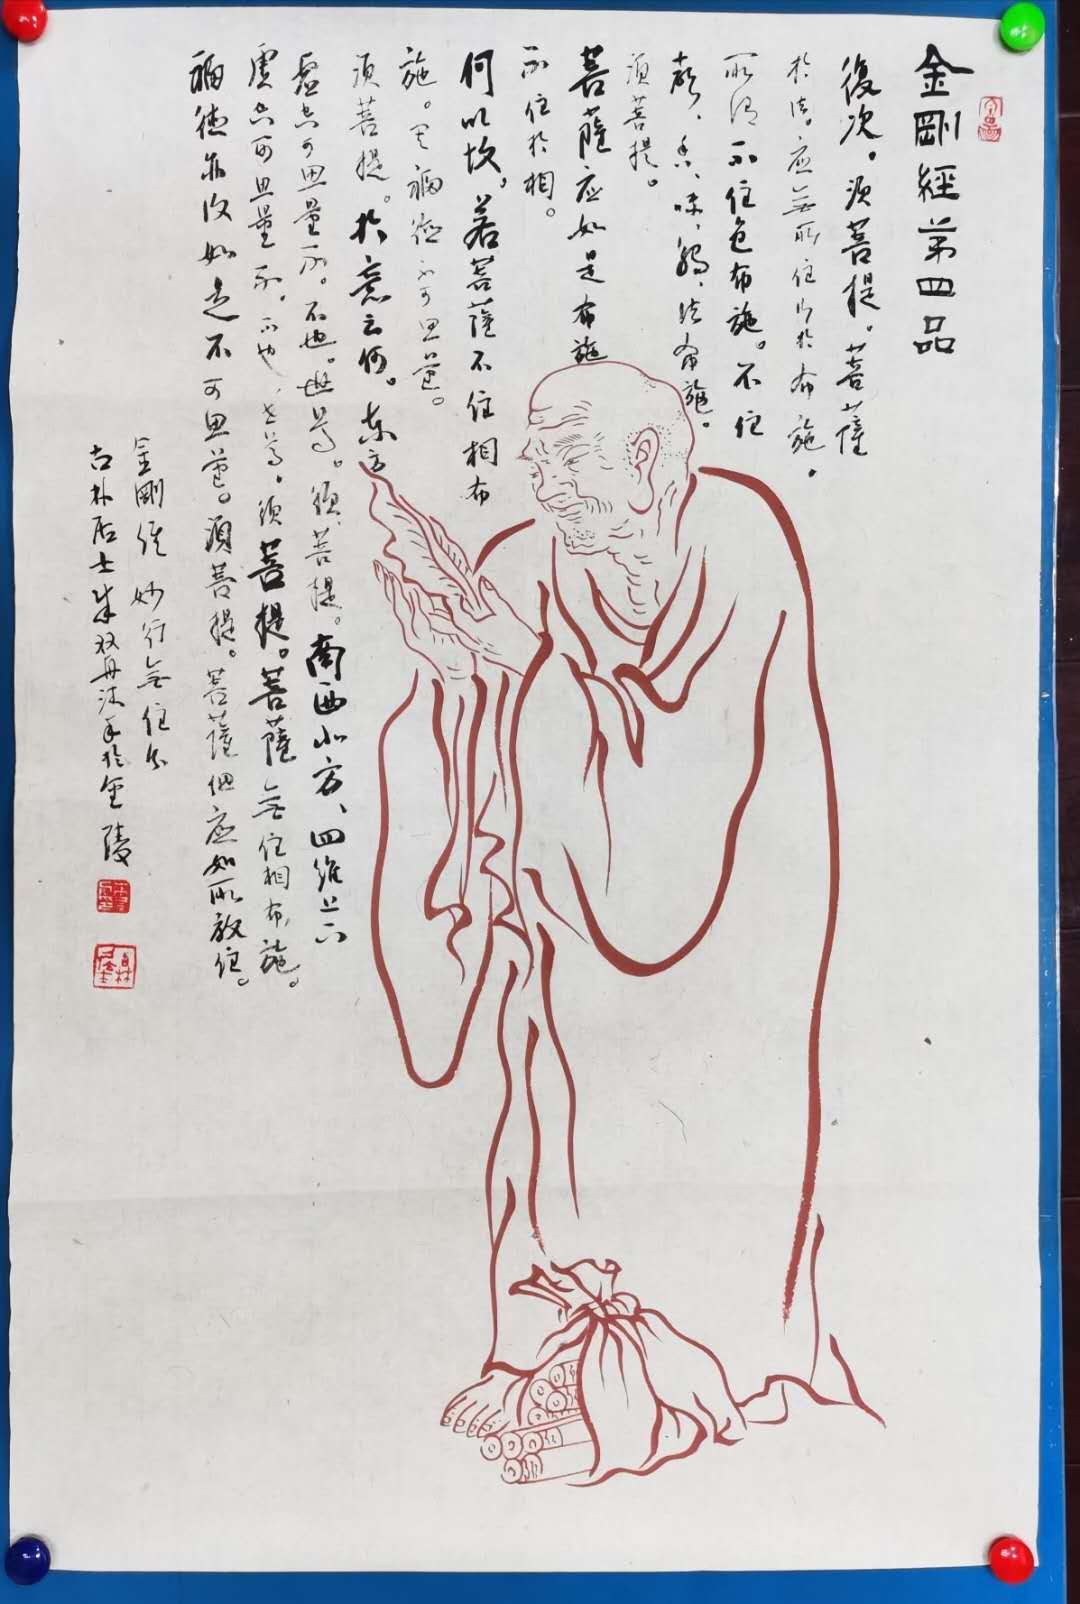 金剛經第四品
復次。須菩提。菩薩
於法。应無所住行於布施。
所謂不住色布施。不住
声、香、味、觸、法布施。
須菩提。
菩薩应如是布施
不住於相。
何以故。若菩薩不住相布
施。其福德不可思量。
須菩提。於意云何。东方
虚空可思量不。不也。世尊。須菩提。南西北方、四維上下
虚空可思量不。不也、世尊。須菩提。菩薩無住相布施。
福德亦復如是不可思量。須菩提。菩薩但应如所教住。
金剛經妙行無住分
古朴居士朱双丹沐手於金陵